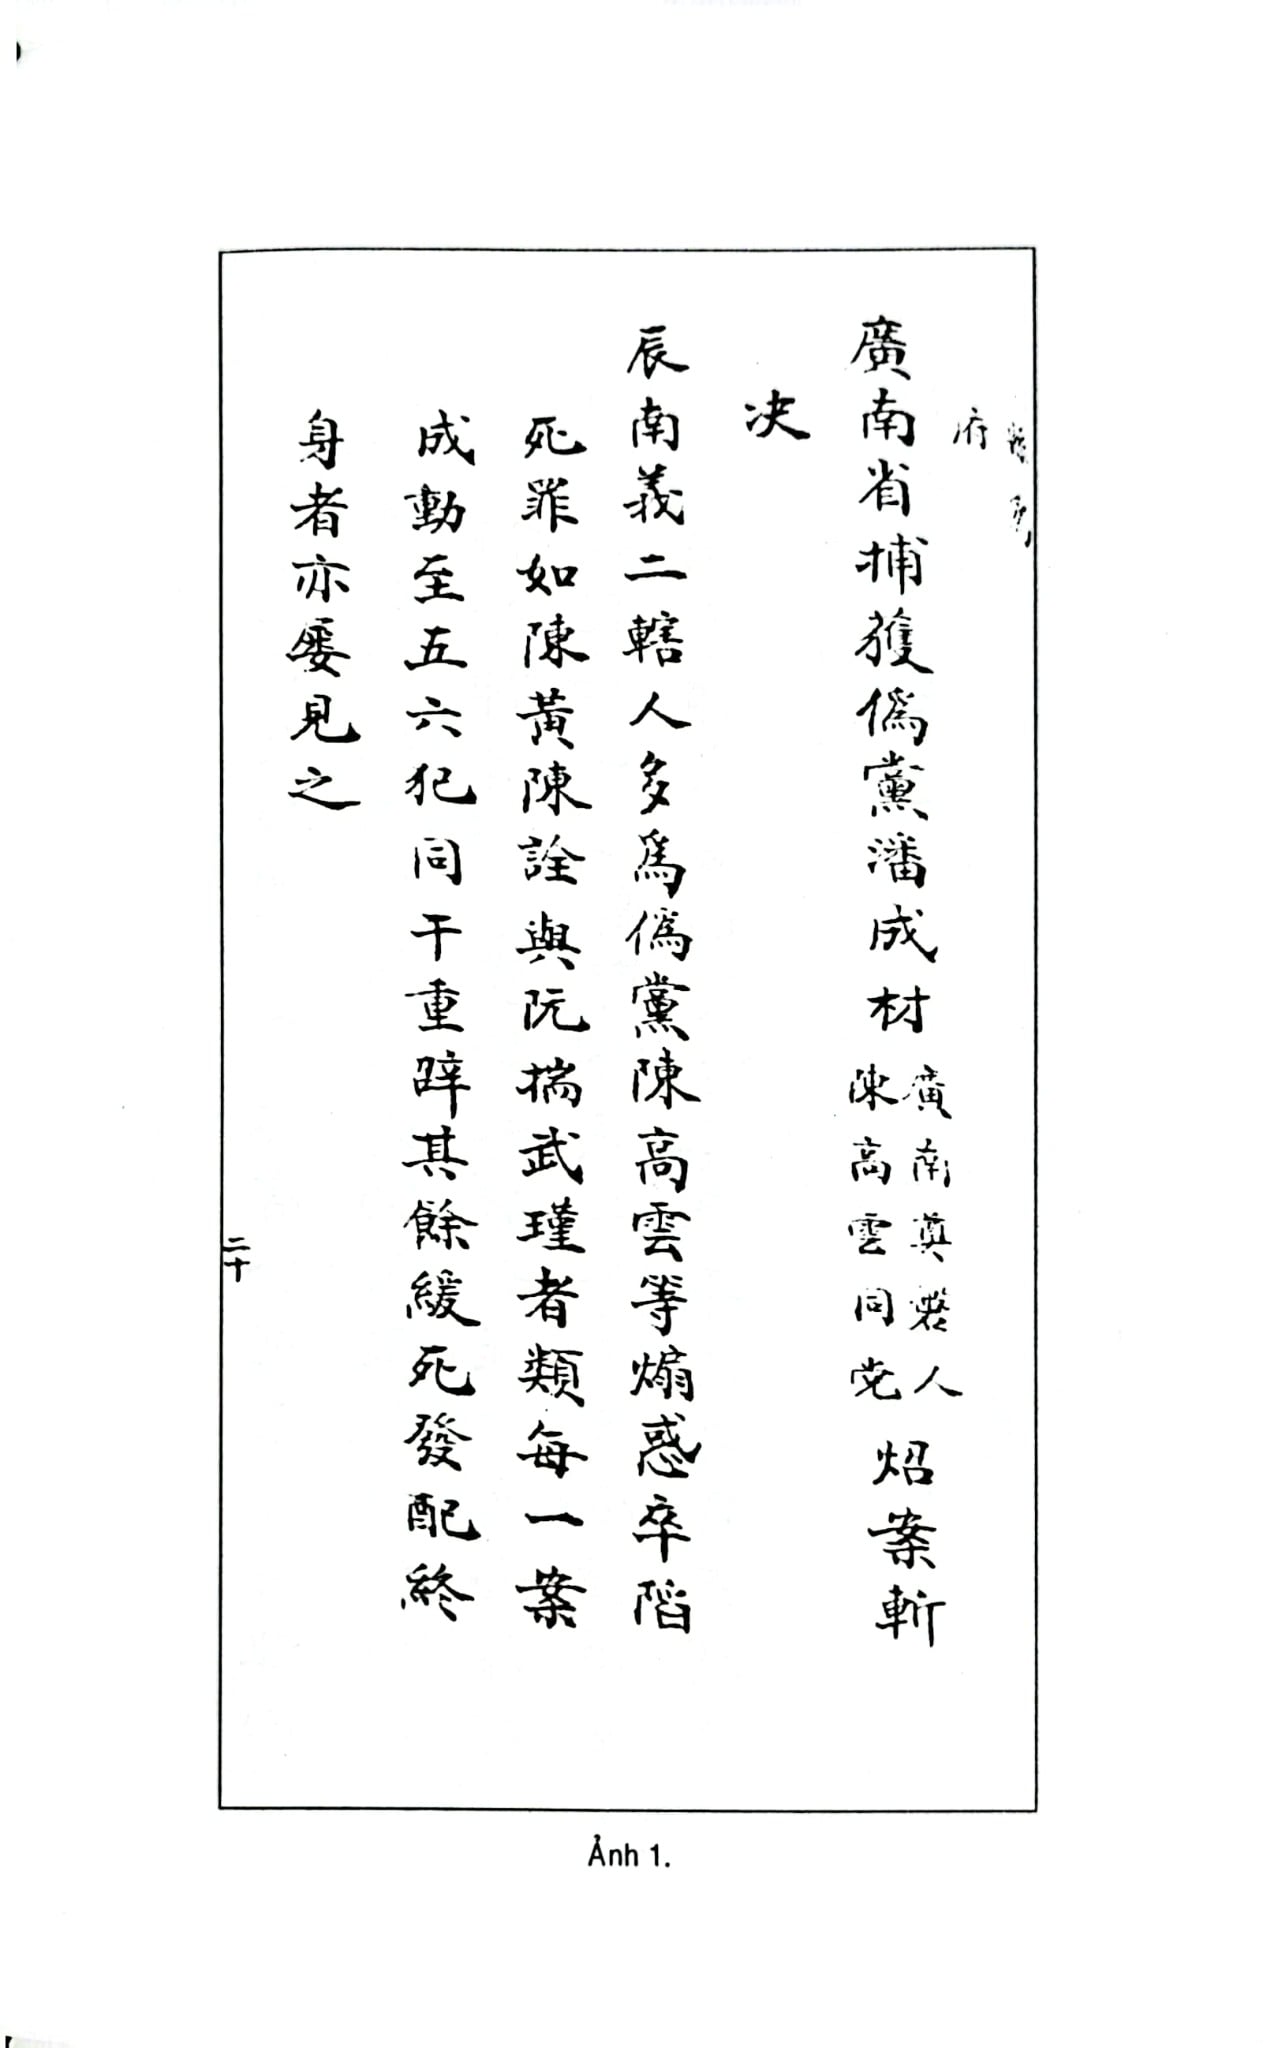 府
廣南省捕獲偽黨潘成材
廣南奠磐人
陳高雲同党
炤案斬
决
辰南義二轄人多爲偽黨陳高雲等煽惑卒陷
死罪如陳黃陳詮與阮揣武瑾者類每一案
成動至五六犯同干重辟其餘緩死發配終
身者亦屡見之
二十
Ảnh 1.